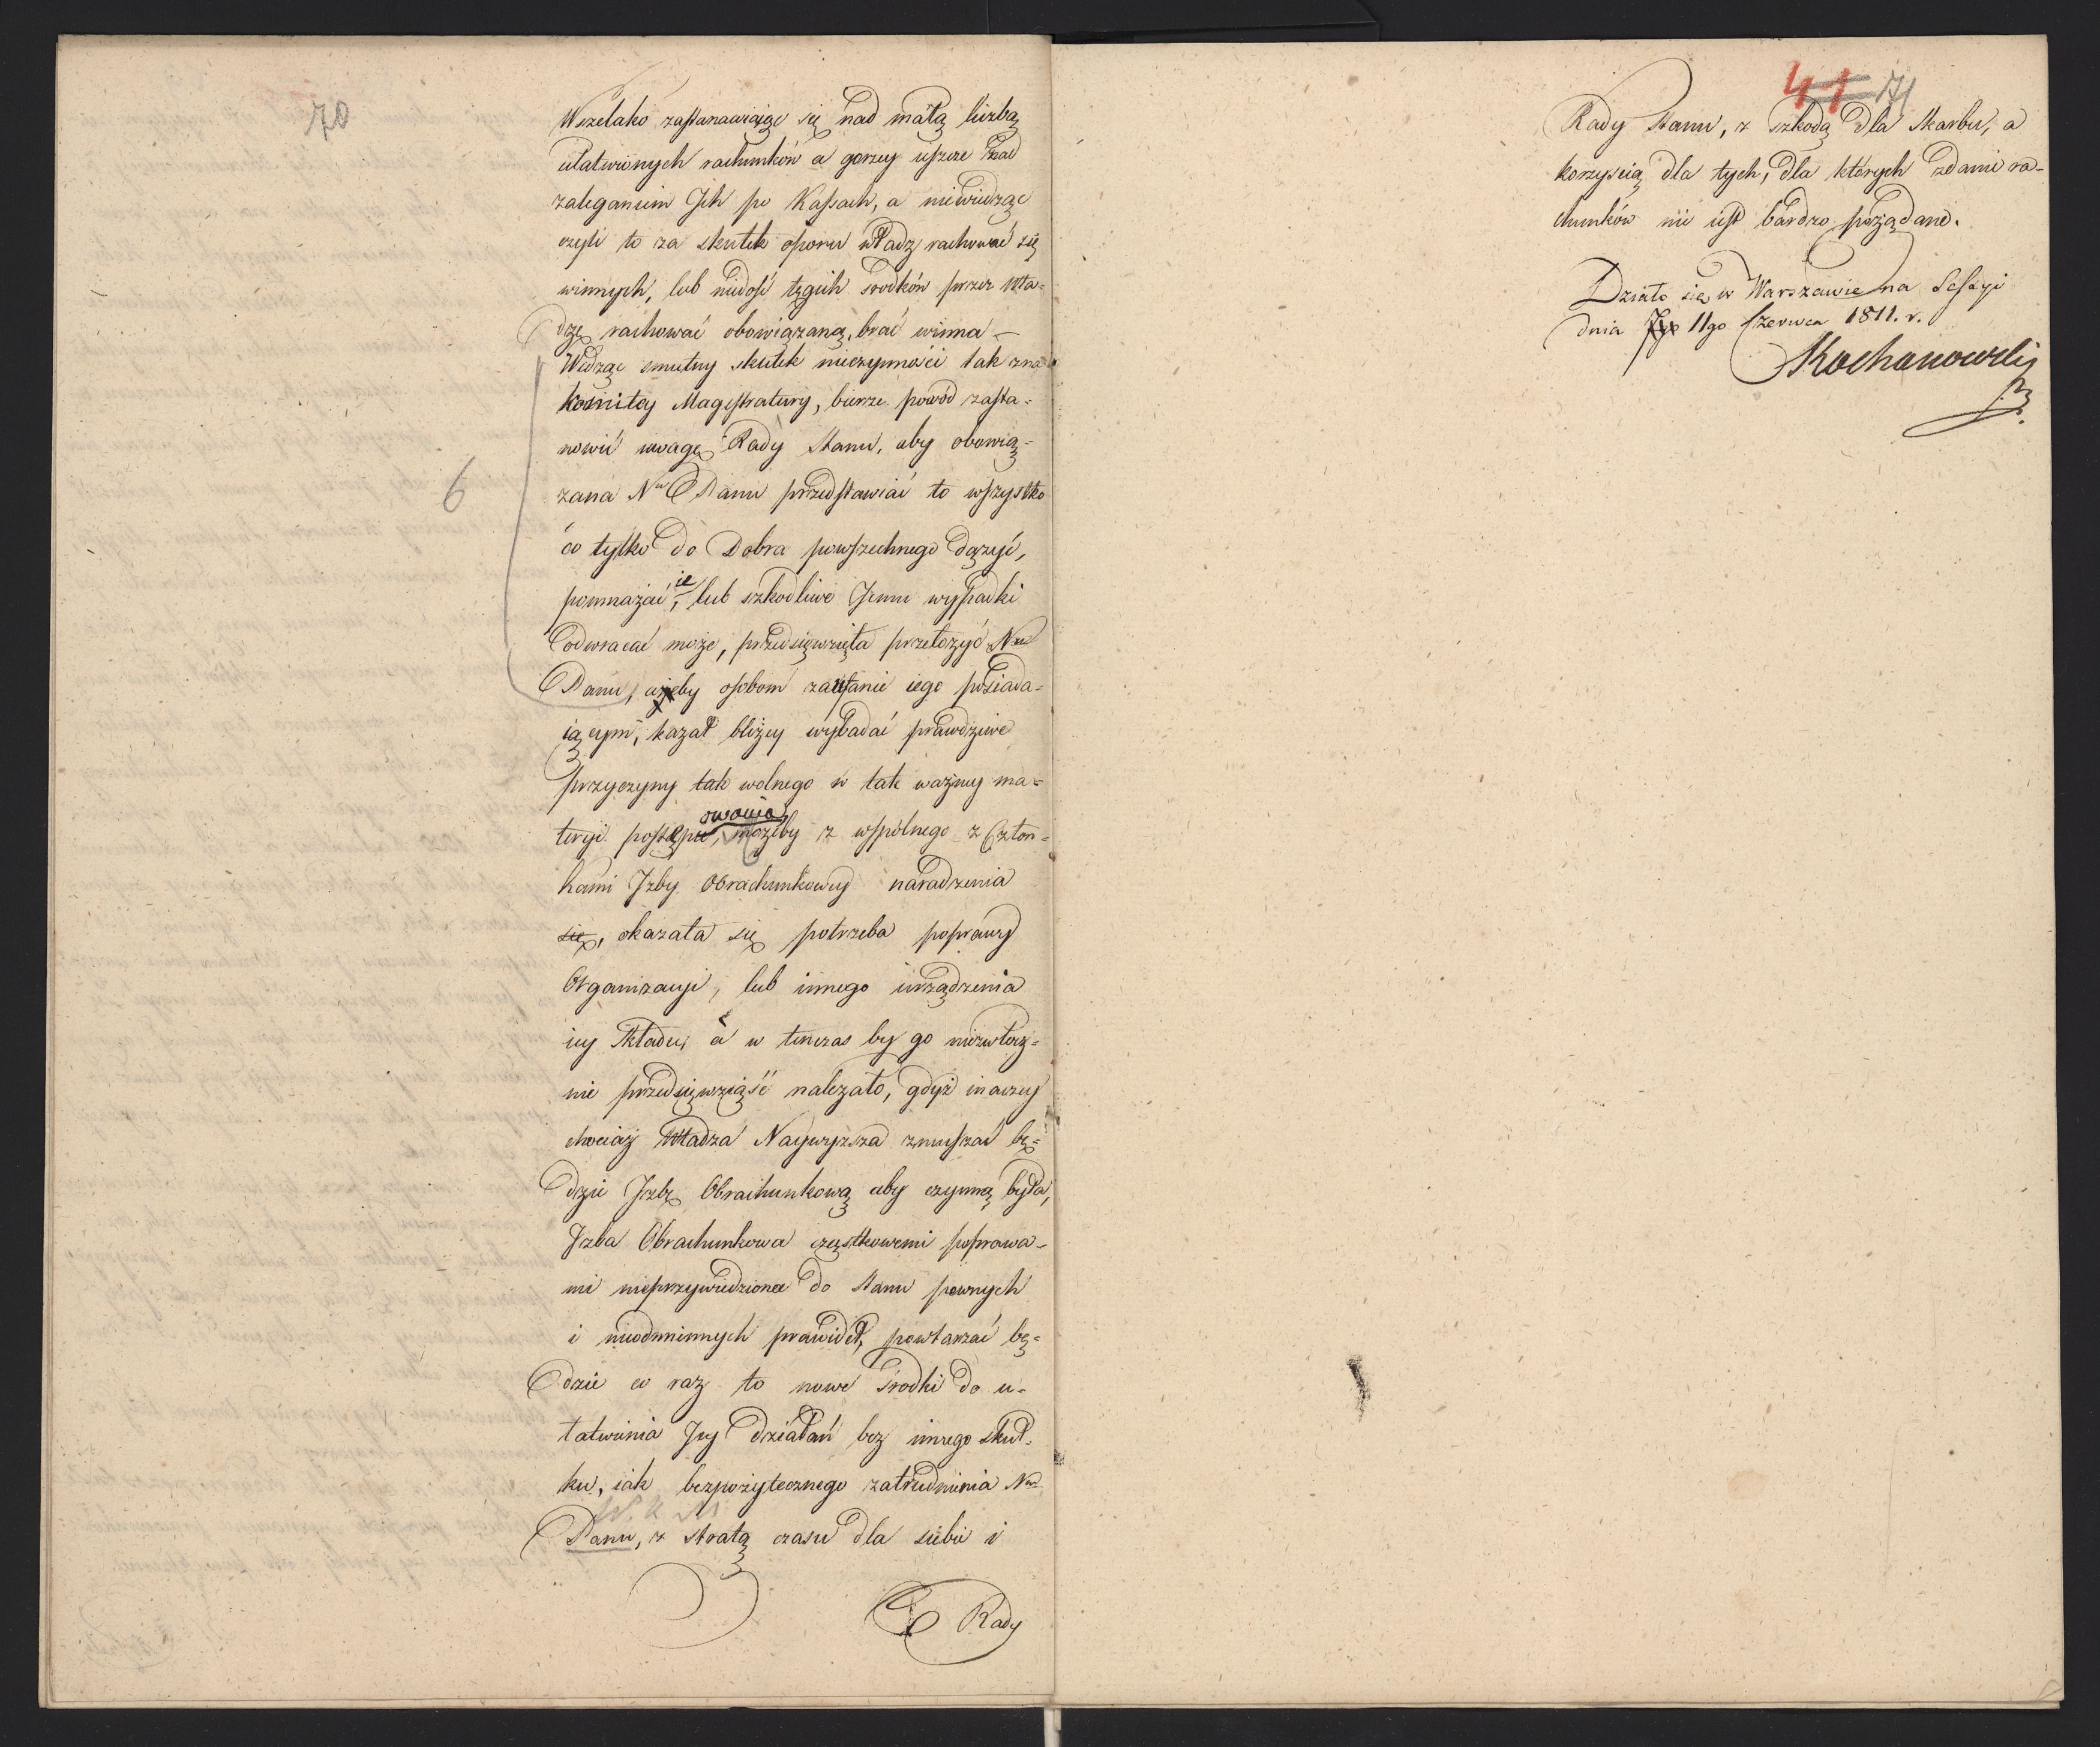 70
Wszelako zastanawiając się nad małą liczbą
ułatwionych rachunków a gorzey ieszcze nad
zaleganiem Ich po Kassach, a niewiedząc
czyli to za skutek oporu władz rachować się
winnych, lub niedość tęgich środków przez Wła=
dzę rachować obowiązaną, brać winna –
Widząc smutny skutek nieczynności tak zna=
komitey Magistratury, bierze powód zasta=
nowić uwagę Rady Stanu, aby obowią=
6
zana N. Panu przedstawiać to wszystko
co tylko do Dobra powszechnego dążyć,
pomnażać ie, lub szkodliwe Jemu wypadki
odwracać może, przedsięwzięła przełożyć N.
Panu, ażeby osobom zaufanie iego posiada=
iącym, kazał bliżey wybadać prawdziwe
przyczyny tak wolnego w tak ważney ma=
teryi postępowania, możeby z wspólnego z Człon=
kami Izby Obrachunkowey naradzenia
się, okazała się potrzeba poprawy
Organizacyi, lub innego urządzenia
iey Składu, a w tenczas by go niezwłocz=
nie przedsięwziąść należało, gdyż inaczey
chociaż Władza Naywyższa zmuszać bę=
dzie Izbę Obrachunkową aby czynną była,
Izba Obrachunkowa cząstkowemi poprawa=
mi nieprzywiedziona do stanu pewnych
i nieodmiennych prawideł, powtarzać bę=
dzie co raz to nowe środki do u=
łatwienia Jey działań bez innego skut=
ku, iak bezpożytecznego zatrudnienia N.
Panu, z stratą czasu dla siebie i
Rady
41 71
Rady Stanu, z szkodą dla Skarbu, a
korzyścią dla tych, dla których zdanie ra=
chunków nie iest bardzo pożądane.
Działo się w Warszawie na Sessyi
dnia 11go Czerwca 1811. r.
Kochanowski